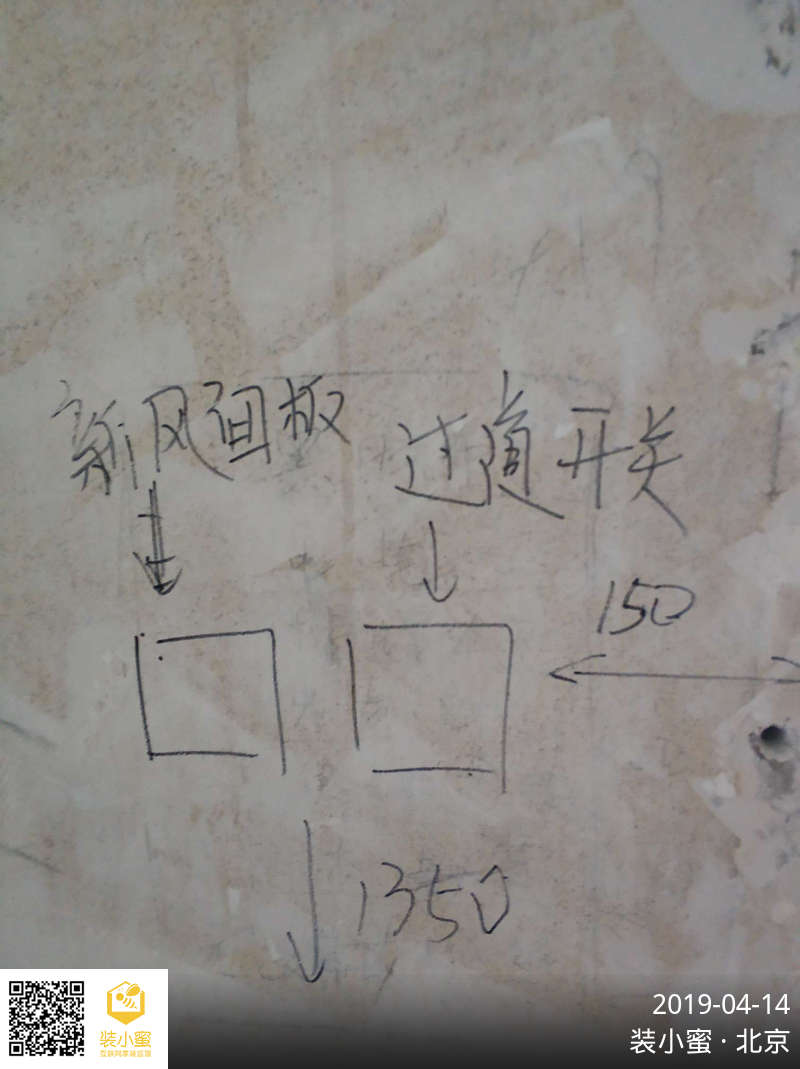 新风面板 过道开关
150
1350
装小蜜
互联网家装监理
2019-04-14
装小蜜·北京